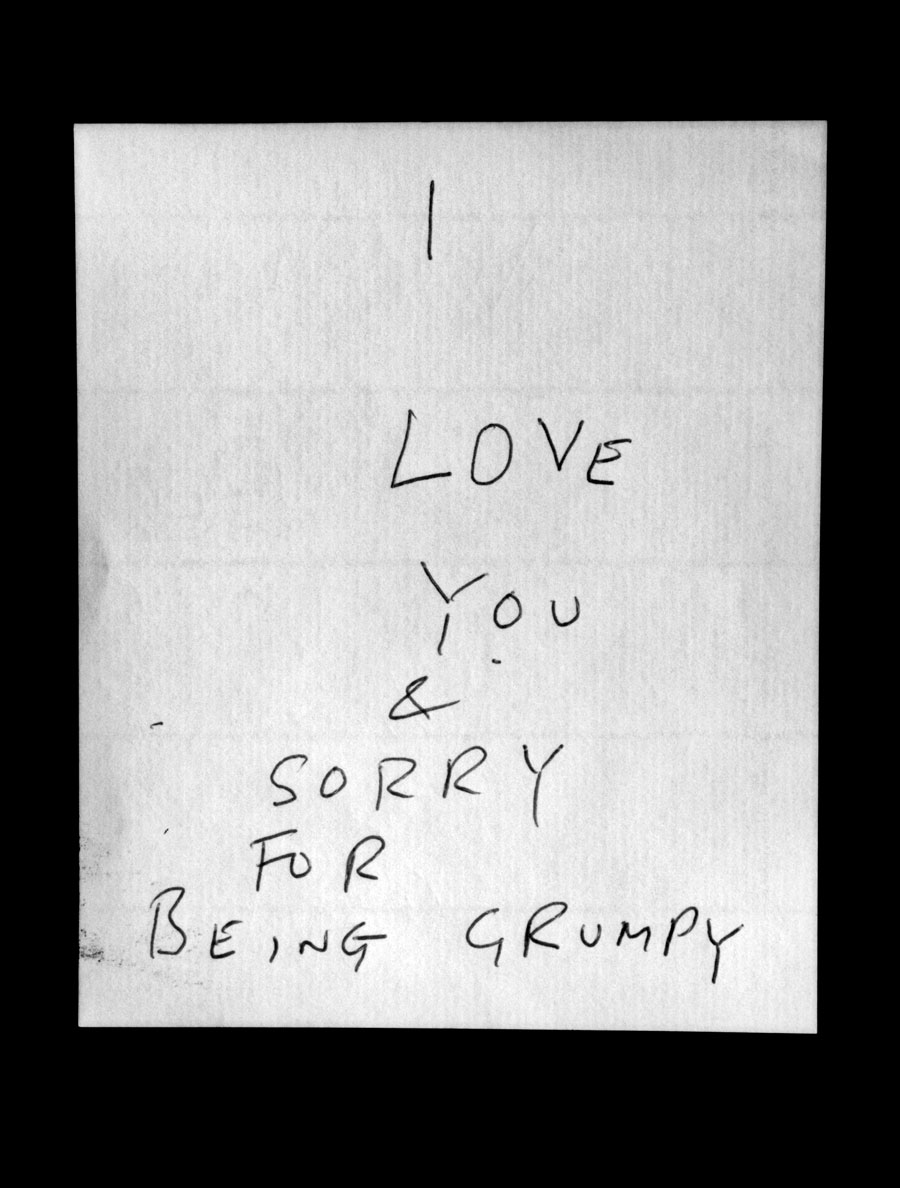 I
LOVE
YOU
&
SORRY
FOR
BEING GRUMPY